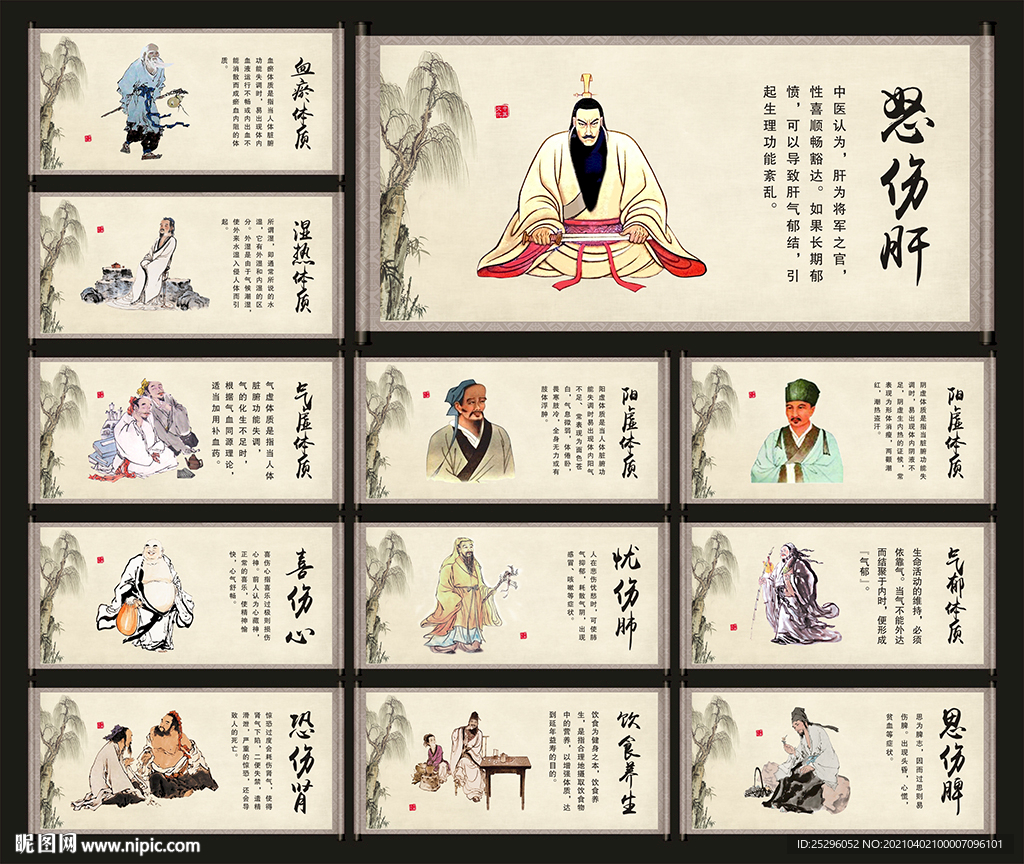 血瘀体质
血瘀体质是指当人体脏腑
功能失调时，易出现体内
血液运行不畅或内出血不
能消散而成瘀血内阻的体
质。
怒伤肝
中医认为，肝为将军之官，
性喜顺畅豁达。如果长期郁
愤，可以导致肝气郁结，引
起生理功能紊乱。
湿热体质
所谓湿，即通常所说的水
湿，它有外湿和内湿的区
分。外湿是由于气候潮湿，
使外来水湿入侵人体而引
起。
气虚体质
气虚体质是指当人体
脏腑功能失调，
气的化生不足时，
根据气血同源理论，
适当加用补血药。
阳虚体质
阳虚体质是当人体脏腑功
能失调时易出现体内阳气
不足、常表现为面色苍
白，气息微弱，体倦卧，
畏寒肢冷，全身无力或有
肢体浮肿。
阳虚体质
阴虚体质是指当脏腑功能失
调时，易出现体内阴液不
足，阴虚生内热的证候，常
表现为形体消瘦，两颧潮
红，潮热盗汗。
喜伤心
喜伤心指喜乐过极则损伤
心神。前人认为心藏神，
正常的喜乐，使精神愉
快，心气舒畅。
忧伤肺
人在悲伤忧愁时，可使肺
气抑郁，耗散气阴，出现
感冒、咳嗽等症状。
气郁体质
生命活动的维持，必须
依靠气。当气不能外达
而结聚于内时，便形成
『气郁』。
恐伤肾
惊恐过度会耗伤肾气，使得
肾气下陷，二便失禁，遗精
滑泄，严重的惊恐，还会导
致人的死亡。
饮食养生
饮食为健身之本，饮食养
生，是指合理地摄取饮食物
中的营养，以增强体质，达
到延年益寿的目的。
思伤脾
思为脾志，因而过思则易
伤脾。出现头昏，心慌，
贫血等症状。
昵图网 www.nipic.com
ID:25296052 NO:20210402100007096101